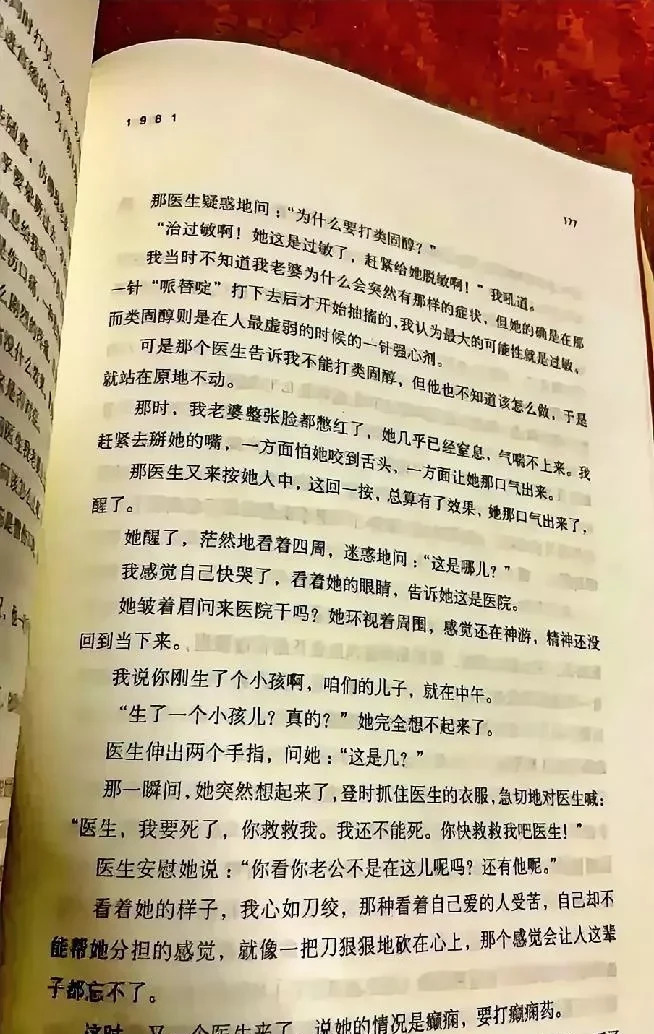 1981
177
那医生疑惑地问：“为什么要打类固醇？”
“治过敏啊！她这是过敏了，赶紧给她脱敏啊！”我吼道。
我当时不知道我老婆为什么会突然有那样的症状，但她的确是在那
一针“哌替啶”打下去后才开始抽搐的，我认为最大的可能性就是过敏。
而类固醇则是在人最虚弱的时候的一针强心剂。
可是那个医生告诉我不能打类固醇，但他也不知道该怎么做，于是
就站在原地不动。
那时，我老婆整张脸都憋红了，她几乎已经窒息，气喘不上来。我
赶紧去掰她的嘴，一方面怕她咬到舌头，一方面让她那口气出来。
那医生又来按她人中，这回一按，总算有了效果，她那口气出来了，
醒了。
她醒了，茫然地看着四周，迷惑地问：“这是哪儿？”
我感觉自己快哭了，看着她的眼睛，告诉她这是医院。
她皱着眉问来医院干吗？她环视着周围，感觉还在神游，精神还没
回到当下来。
我说你刚生了个小孩啊，咱们的儿子，就在中午。
“生了一个小孩儿？真的？”她完全想不起来了。
医生伸出两个手指，问她：“这是几？”
那一瞬间，她突然想起来了，登时抓住医生的衣服，急切地对医生喊：
“医生，我要死了，你救救我。我还不能死。你快救救我吧医生！”
医生安慰她说：“你看你老公不是在这儿呢吗？还有他呢。”
看着她的样子，我心如刀绞，那种看着自己爱的人受苦，自己却不
能帮她分担的感觉，就像一把刀狠狠地砍在心上，那个感觉会让人这辈
子都忘不了。
这时，又一个医生来了，说她的情况是癫痫，要打癫痫药。